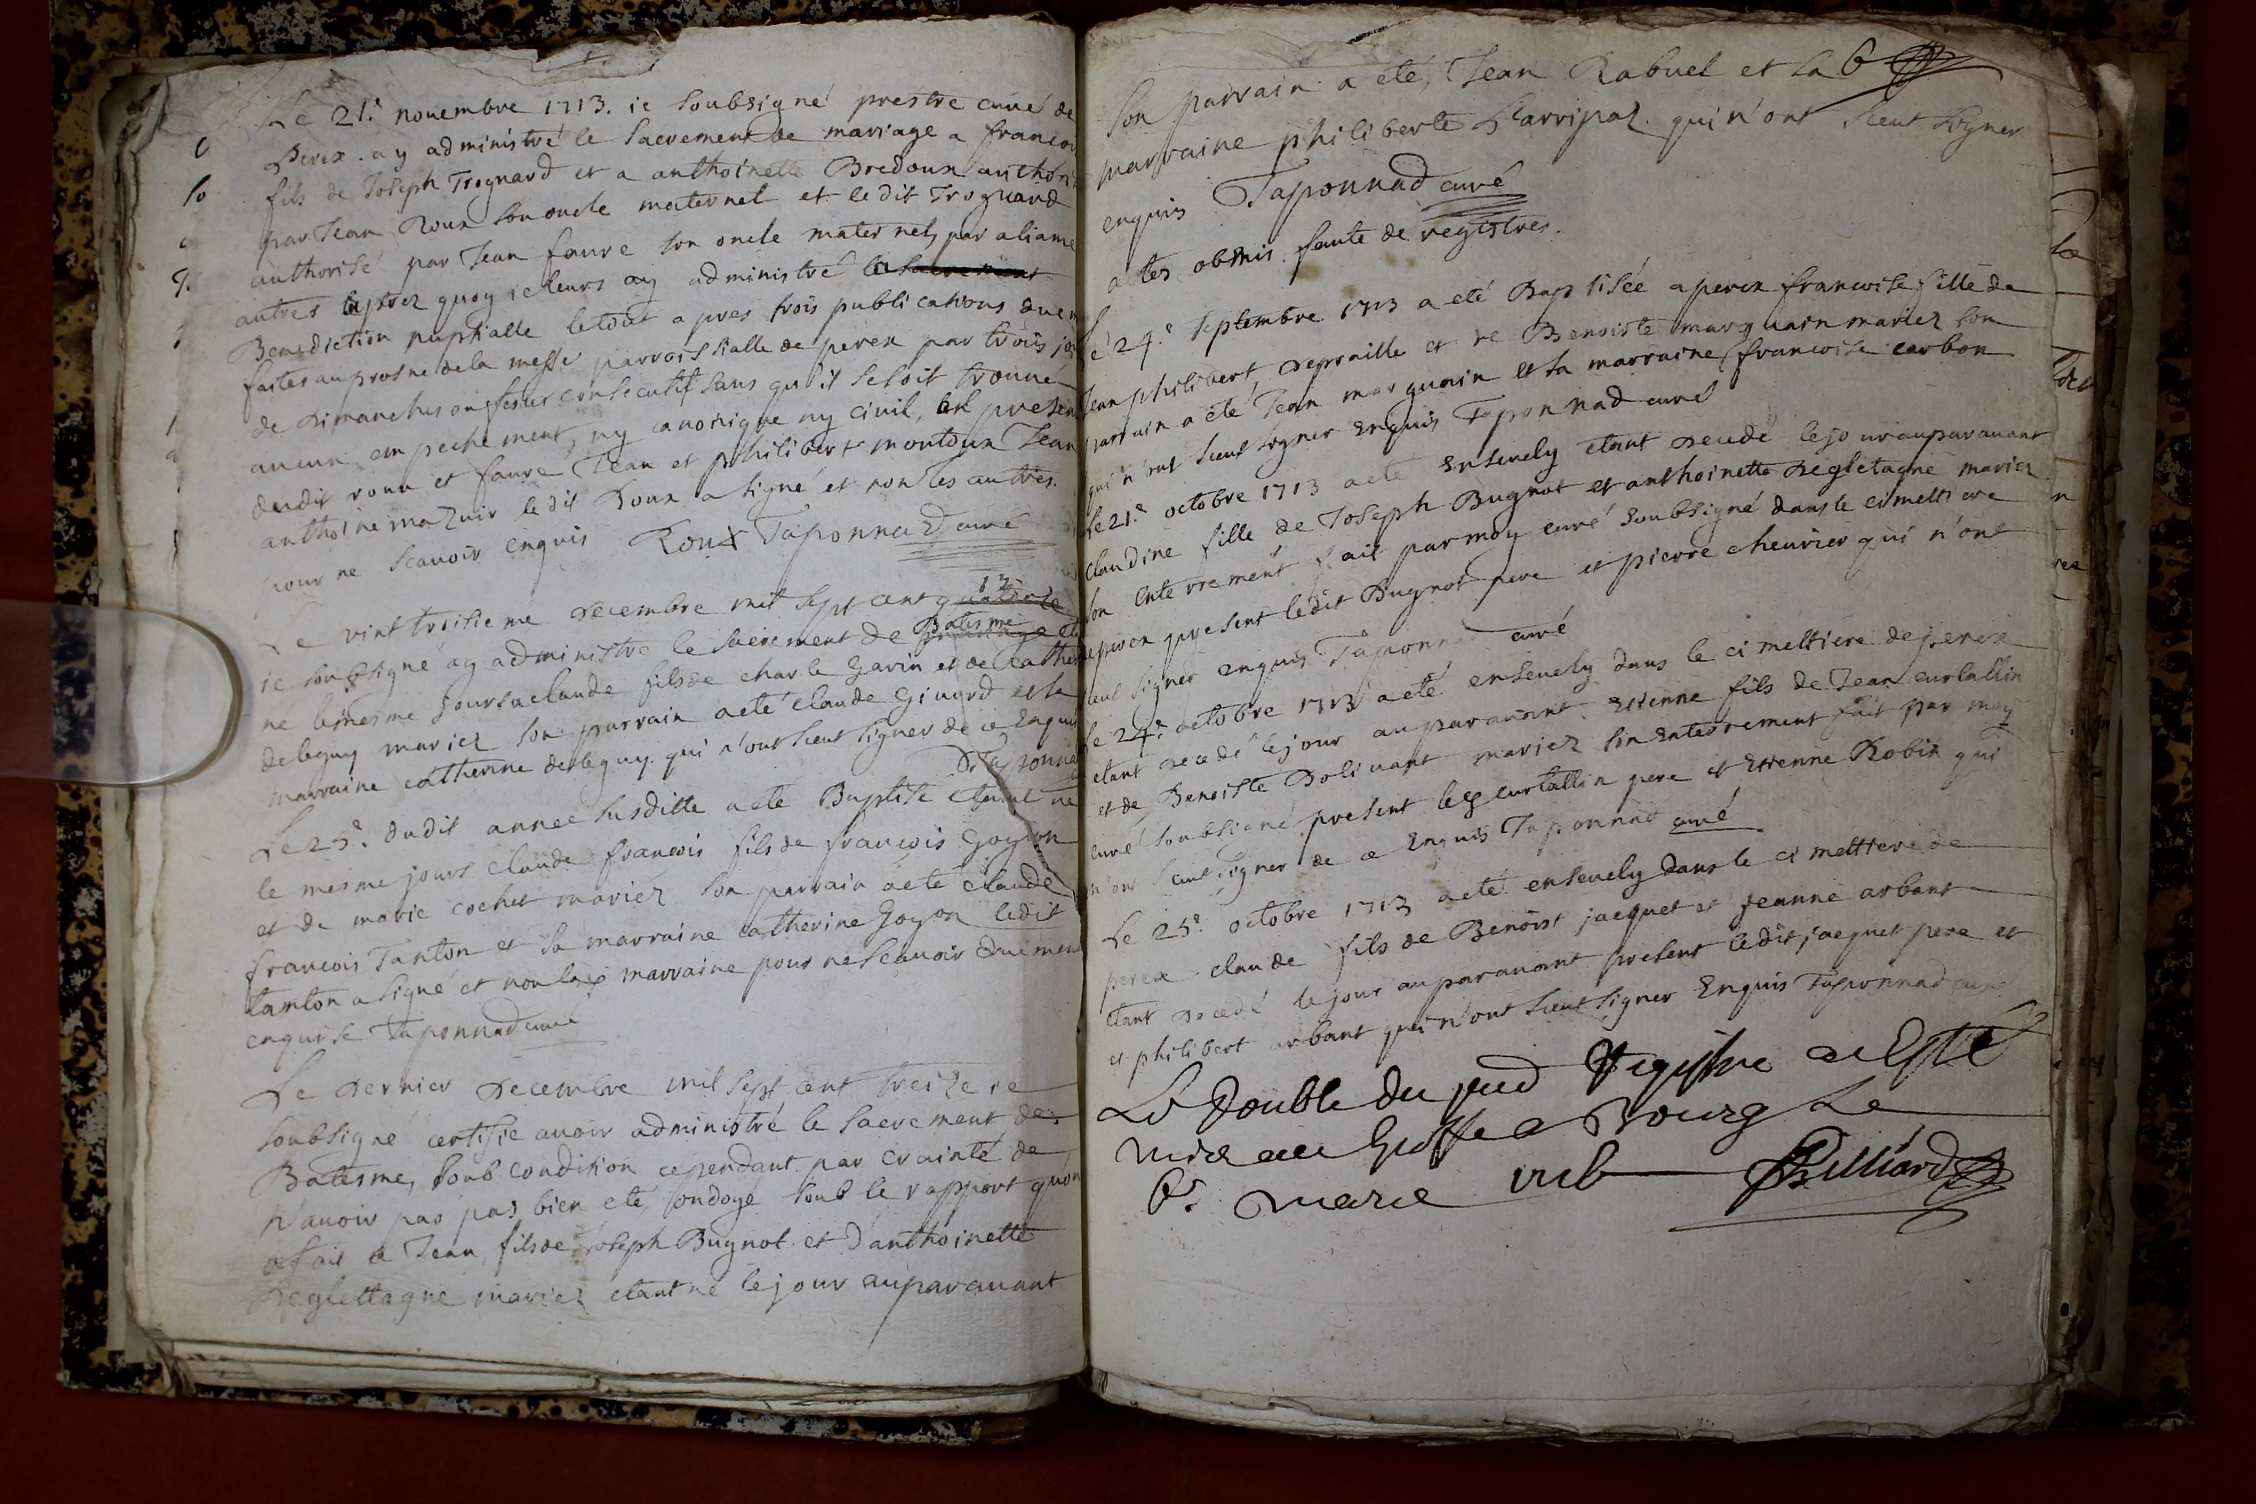 Le 21e. nouembre 1713. ie soubsigné prestre curé de
Perex. ay administré le sacrement de mariage a francoi
fils de Joseph Trognard et a anthoinette Bredoux authori
par Jean Roux son oncle maternel et ledit Trognard
authorisé par Jean faure son oncle maternel, par aliame
autres apres quoy icleurs ay administré la sacrement
Benediction nuptialle letout apres trois publications due
faites auprosne dela messe parroissialle de perex par trois jo
de Dimanches ou festes consecutifs sans qu'il sesoit trouué
aucun empechement, ny canonique ny civil, en presen
dudit roux et faure Jean et philibert montoux Jean
anthoine mazuir ledit Roux a signé et non les autres
pour ne scauoir enquis Roux Taponnad curé
Le vint troisieme Decembre mil sept cent quatorze 13
ie soubsigné ay administré le sacrement de mariage Batesme et
ne le mesme jours a claude fils de charle Gavin et de Cathe
deleguy mariez son parrain aeté claude Givord et la
marraine catherine deleguy. qui n'ont sceut signer de ce Enqui
Taponna
Le 25e. dudit annee susditte a eté Baptisé etant né
le mesme jours claude francois fils de francois Goyon
et de marie cochet mariéz son parrain aeté claude
francois Tanton et sa marraine catherine Goyon ledit
tanton a signé et non la marraine pour ne scauoir duemen
enquise Taponnad curé
Le Dernier Decembre mil sept cent treize ie
soubsigné certifie auoir administré le sacrement de
Batesme, soub condition cependant par crainte de
n'auoir pas pas bien eté ondoyé soub le rapport qu'on
a fait a Jean, fils de Joseph Bugnot et d'anthoinette
Deglettagne mariez etant né le jour auparauant
Son parrain a eté, Jean Rabuel et sa 6
marraine philiberte Karripaz qui n'ont sceut signer
enquis Taponnad curé
actes obmis faute de registres.
Le 24e. septembre 1713 a eté Baptisée a perex francoise fille de
Jean philibert, Depraille et de Benoiste marguain mariez son
parrain a eté Jean marguain et sa marraine francoise carbon
qui n'ont sceut signer enquis Taponnad curé
Le 21e. octobre 1713 a eté Enseuely etant decedé le jour auparauant
claudine fille de Joseph Bugnot et anthoinette Degletagne mariez
son enterrement fait par moy curé soubsigné dans le cimettiere
de perex present ledit Bugnot pere et pierre cheurier qui n'ont
sceut signer enquis Taponnad curé
Le 24e. octobre 1713 a eté enseuely dans le cimettiere de perex
etant decedé le jour auparauant. Etienne fils de Jean curtallin
et de Benoiste Boliuant mariez son enterrement fait par moy
curé soubsigné present les curtallin pere et Etienne Robin qui
n'ont sceut signer de ce Enquis Taponnad curé
Le 25e. octobre 1713 a eté enseuely dans le cimettiere de
perex claude fils de Benoist jacquet et jeanne arbant
etant decedé le jour auparauant present ledit jacquet pere et
et philibert arbant qui n'ont sceut signer Enquis Taponnad curé
Le Double du pnd Registre a Esté
mis au Greffe a Bourg Le
6e. mars Billiard